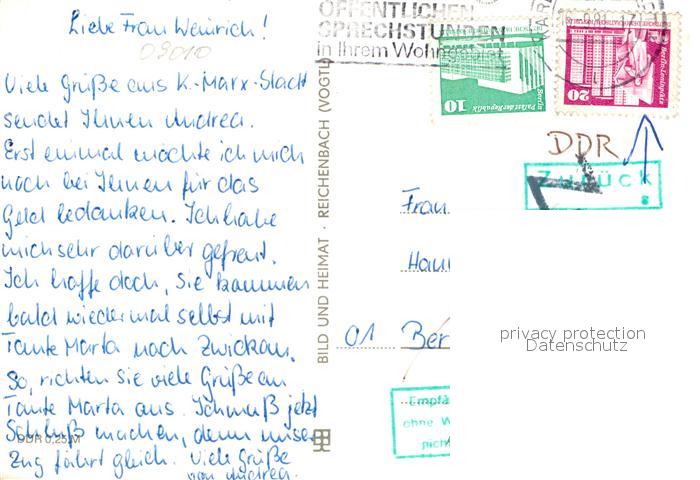 Liebe Frau Weinrich!
09010
Viele Grüße aus K.-Marx-Stadt
sendet Ihnen Andrea.
Erst einmal möchte ich mich
noch bei Ihnen für das
Geld bedanken. Ich habe
mich sehr darüber gefreut.
Ich hoffe doch, Sie kommen
bald wiedermal selbst mit
Tante Marta nach Zwickau.
So, richten Sie viele Grüße an
Tante Marta aus. Ich muß jetzt
Schluß machen, denn unser
Zug fährt gleich. Viele Grüße
von Andrea.
DDR 0,25 M
BILD UND HEIMAT · REICHENBACH (VOGTL
ÖFFENTLICHEN
SPRECHSTUNDEN
in Ihrem Wohngebiet
10
Berlin
Palast der Republik
20
Berlin-Leninplatz
DDR
Zurück
Frau
01 Ber
Empfä
ohne W
privacy protection
Datenschutz